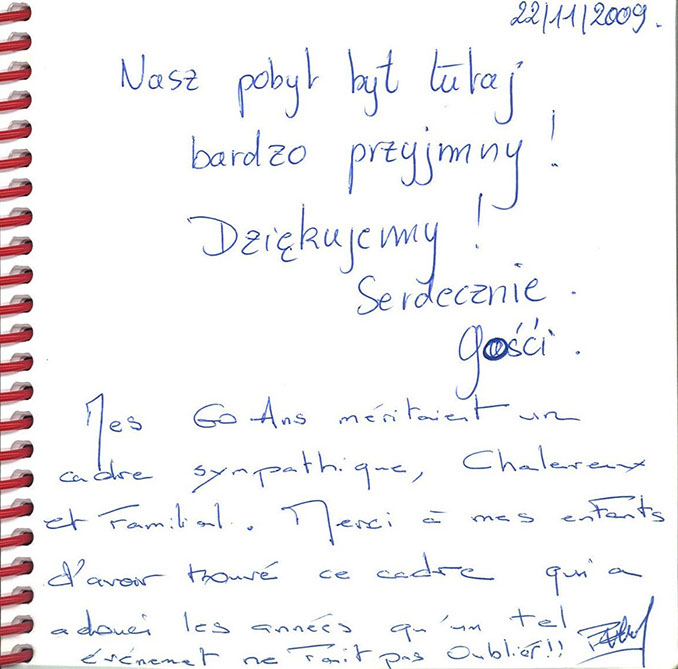 22/11/2009.
Nasz pobyt był tutaj
bardzo przyjmny!
Dziękujemy!
Serdecznie.
gośći.
Mes 60 Ans méritaient un
cadre sympathique, Chalereux
et Familial. Merci à mes enfants
d'avoir trouvé ce cadre qui a
adouci les années qu'un tel
événemet ne Fait pas Oublier!!